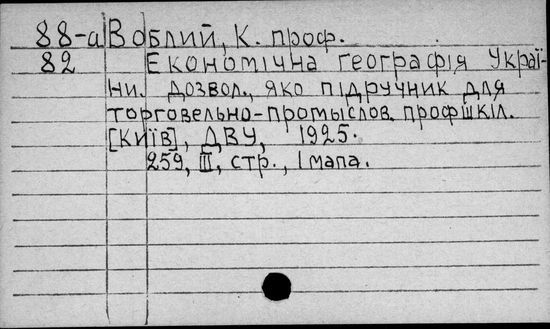 88-а Воблий, К. проф.
82 Економічна географія Украї-
ни. Дозвол., яко підручник для
торговельно-промыслов. профшкіл.
[Київ], ДВУ, 1925.
259, III, стр., 1 мапа.